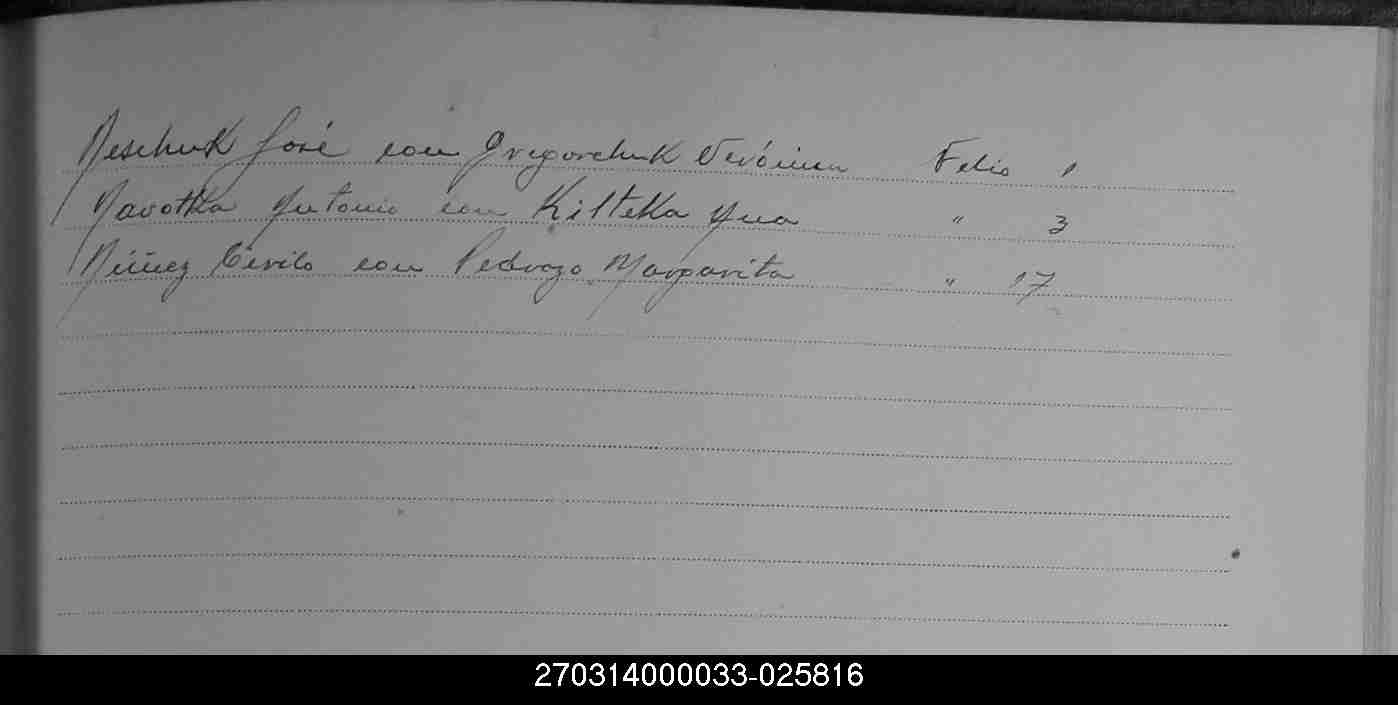 Neschuk José con Gregorchuk Verónica Folio 1
Navotka Antonio con Kilteka Ana " 3
Núñez Cirilo con Pedrozo Margarita " 17
270314000033-025816